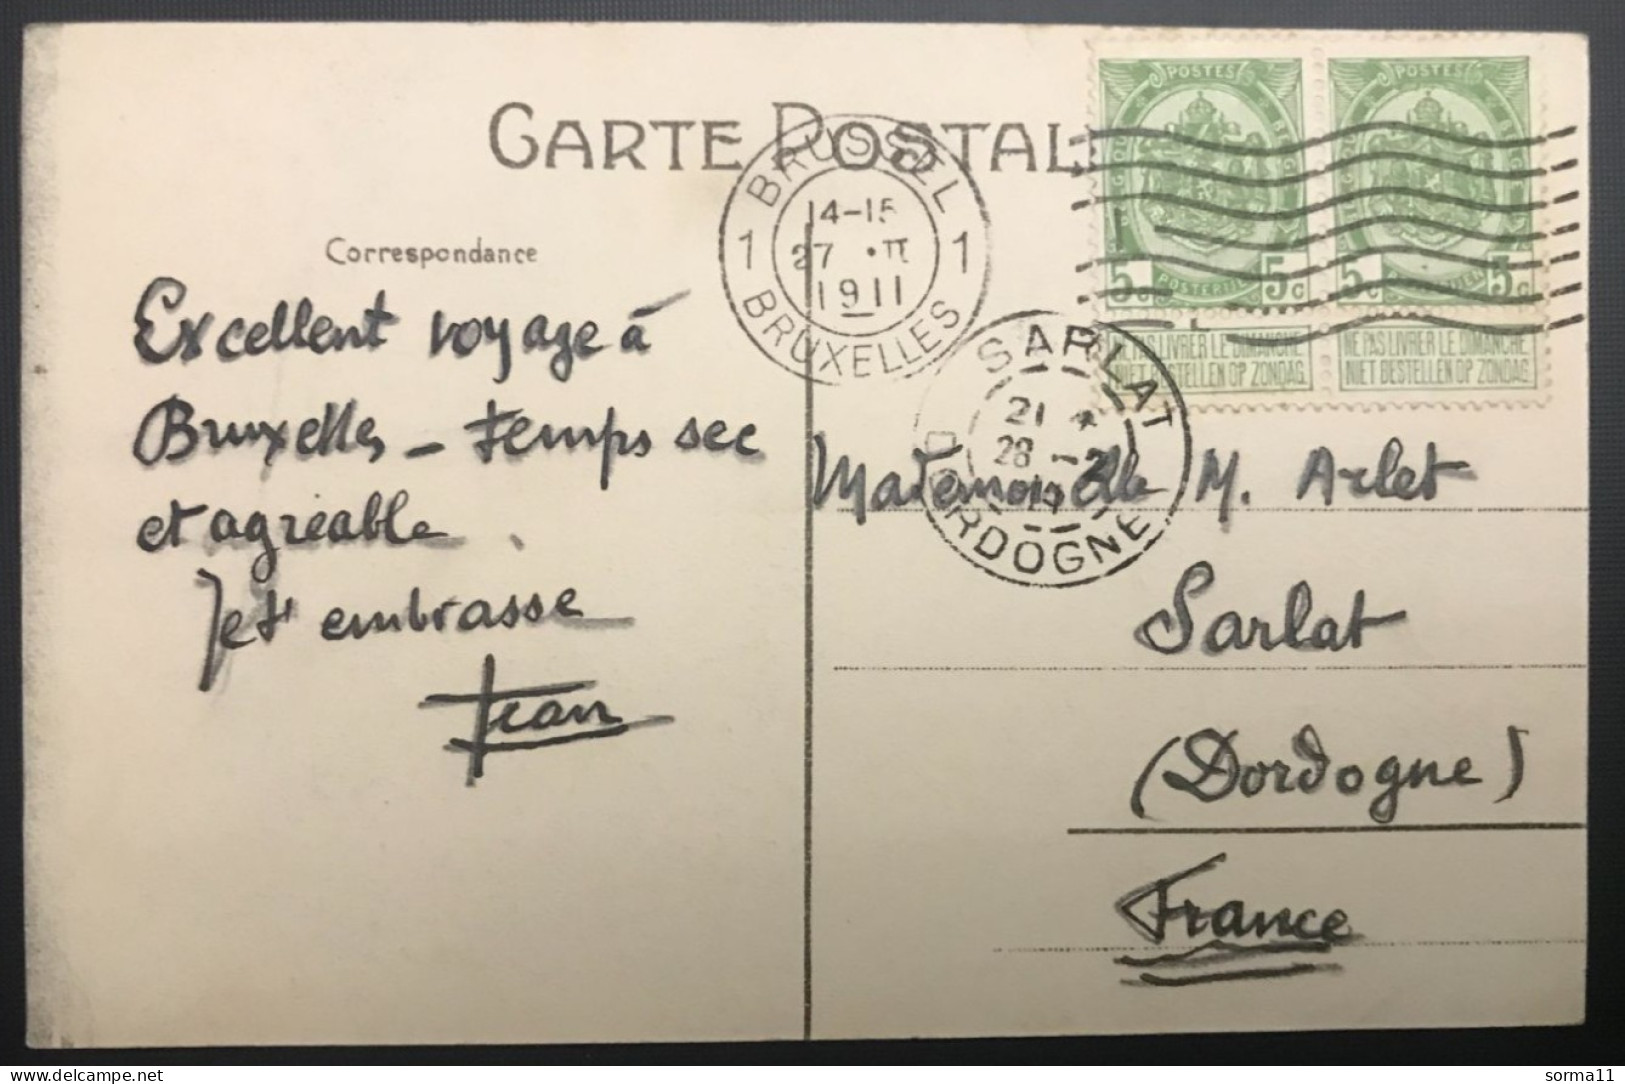 CARTE POSTAL
Correspondance
Excellent voyage à
Bruxelles - temps sec
et agréable.
Je t'embrasse
Jean
BRUSSEL
1 1
14-15
27 · II
1911
BRUXELLES
SARLAT
21 *
28 -2
DORDOGNE
POSTES
5c 5c
POSTERIJEN
NE PAS LIVRER LE DIMANCHE
NIET BESTELLEN OP ZONDAG
POSTES
5c 5c
NE PAS LIVRER LE DIMANCHE
NIET BESTELLEN OP ZONDAG
Mademoiselle M. Arlet
Sarlat
(Dordogne)
France
sorma11